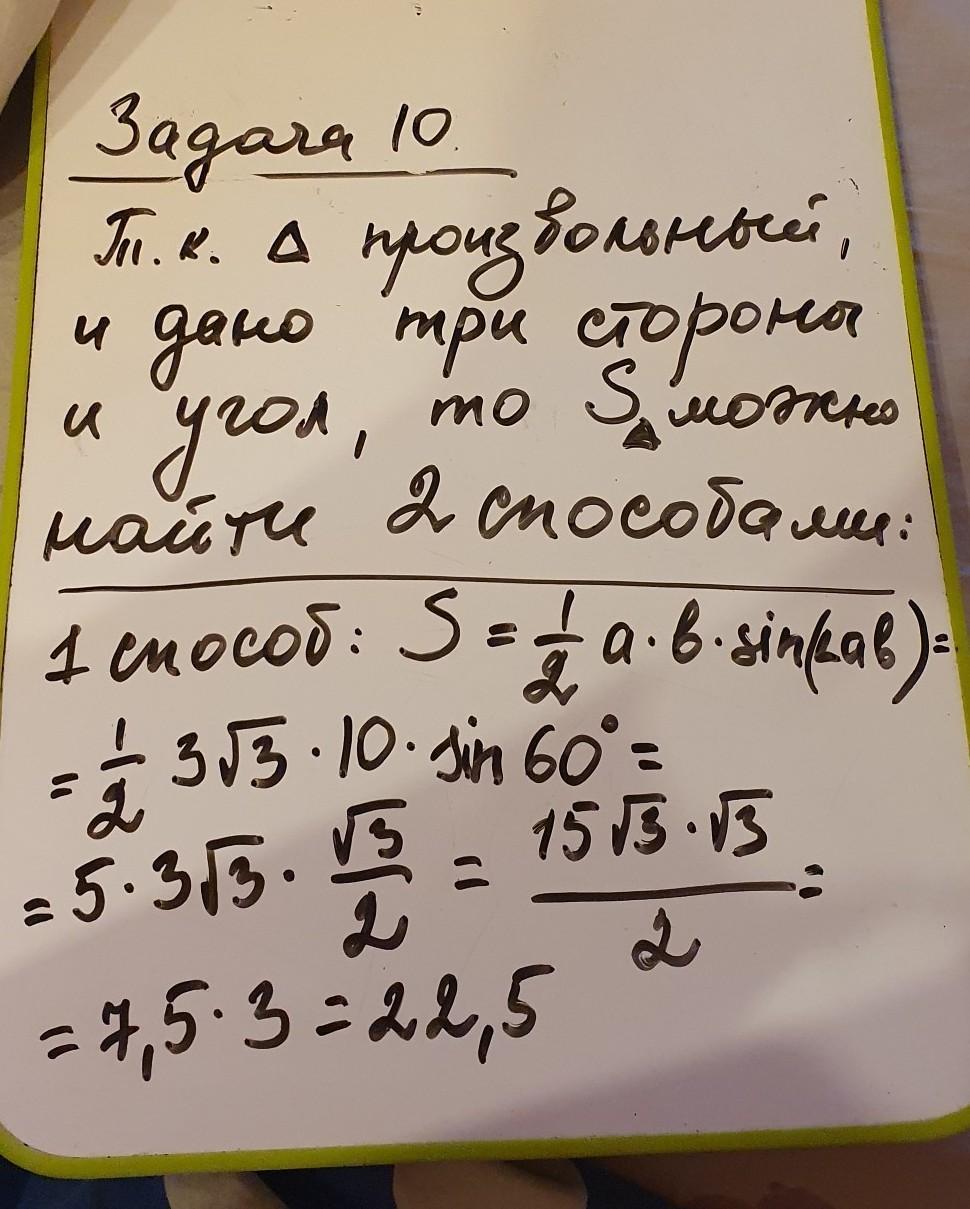 Задача 10.
Т.к. Δ произвольный,
и дано три стороны
и угол, то S△ можно
найти 2 способами:
1 способ: S = 1/2 a·b·sin(∠ab) =
= 1/2 3√3 · 10 · sin 60° =
= 5·3√3 · √3/2 = 15√3·√3/2 =
= 7,5·3 = 22,5